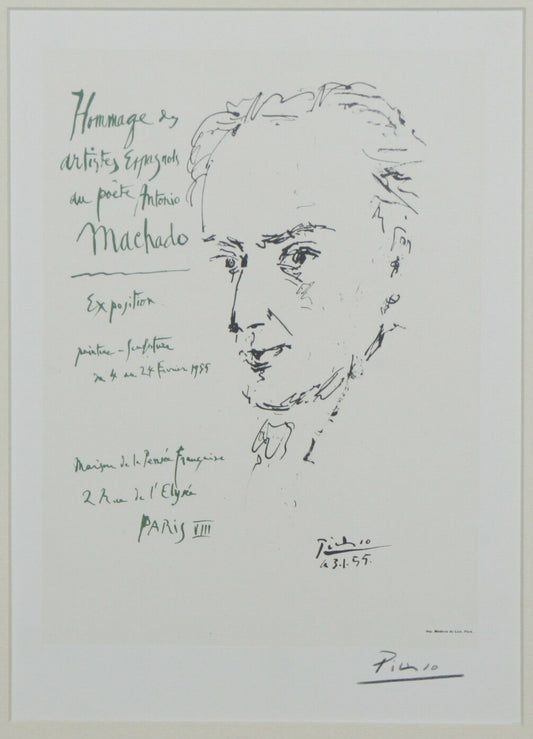 Hommage des
artistes Espagnols
au poète Antonio
Machado
Exposition
peinture - sculpture
du 4 au 24 février 1955
Maison de la Pensée française
2 Rue de l'Elysée
PARIS VIII
Picasso
le 3.1.55.
Paris
Picasso